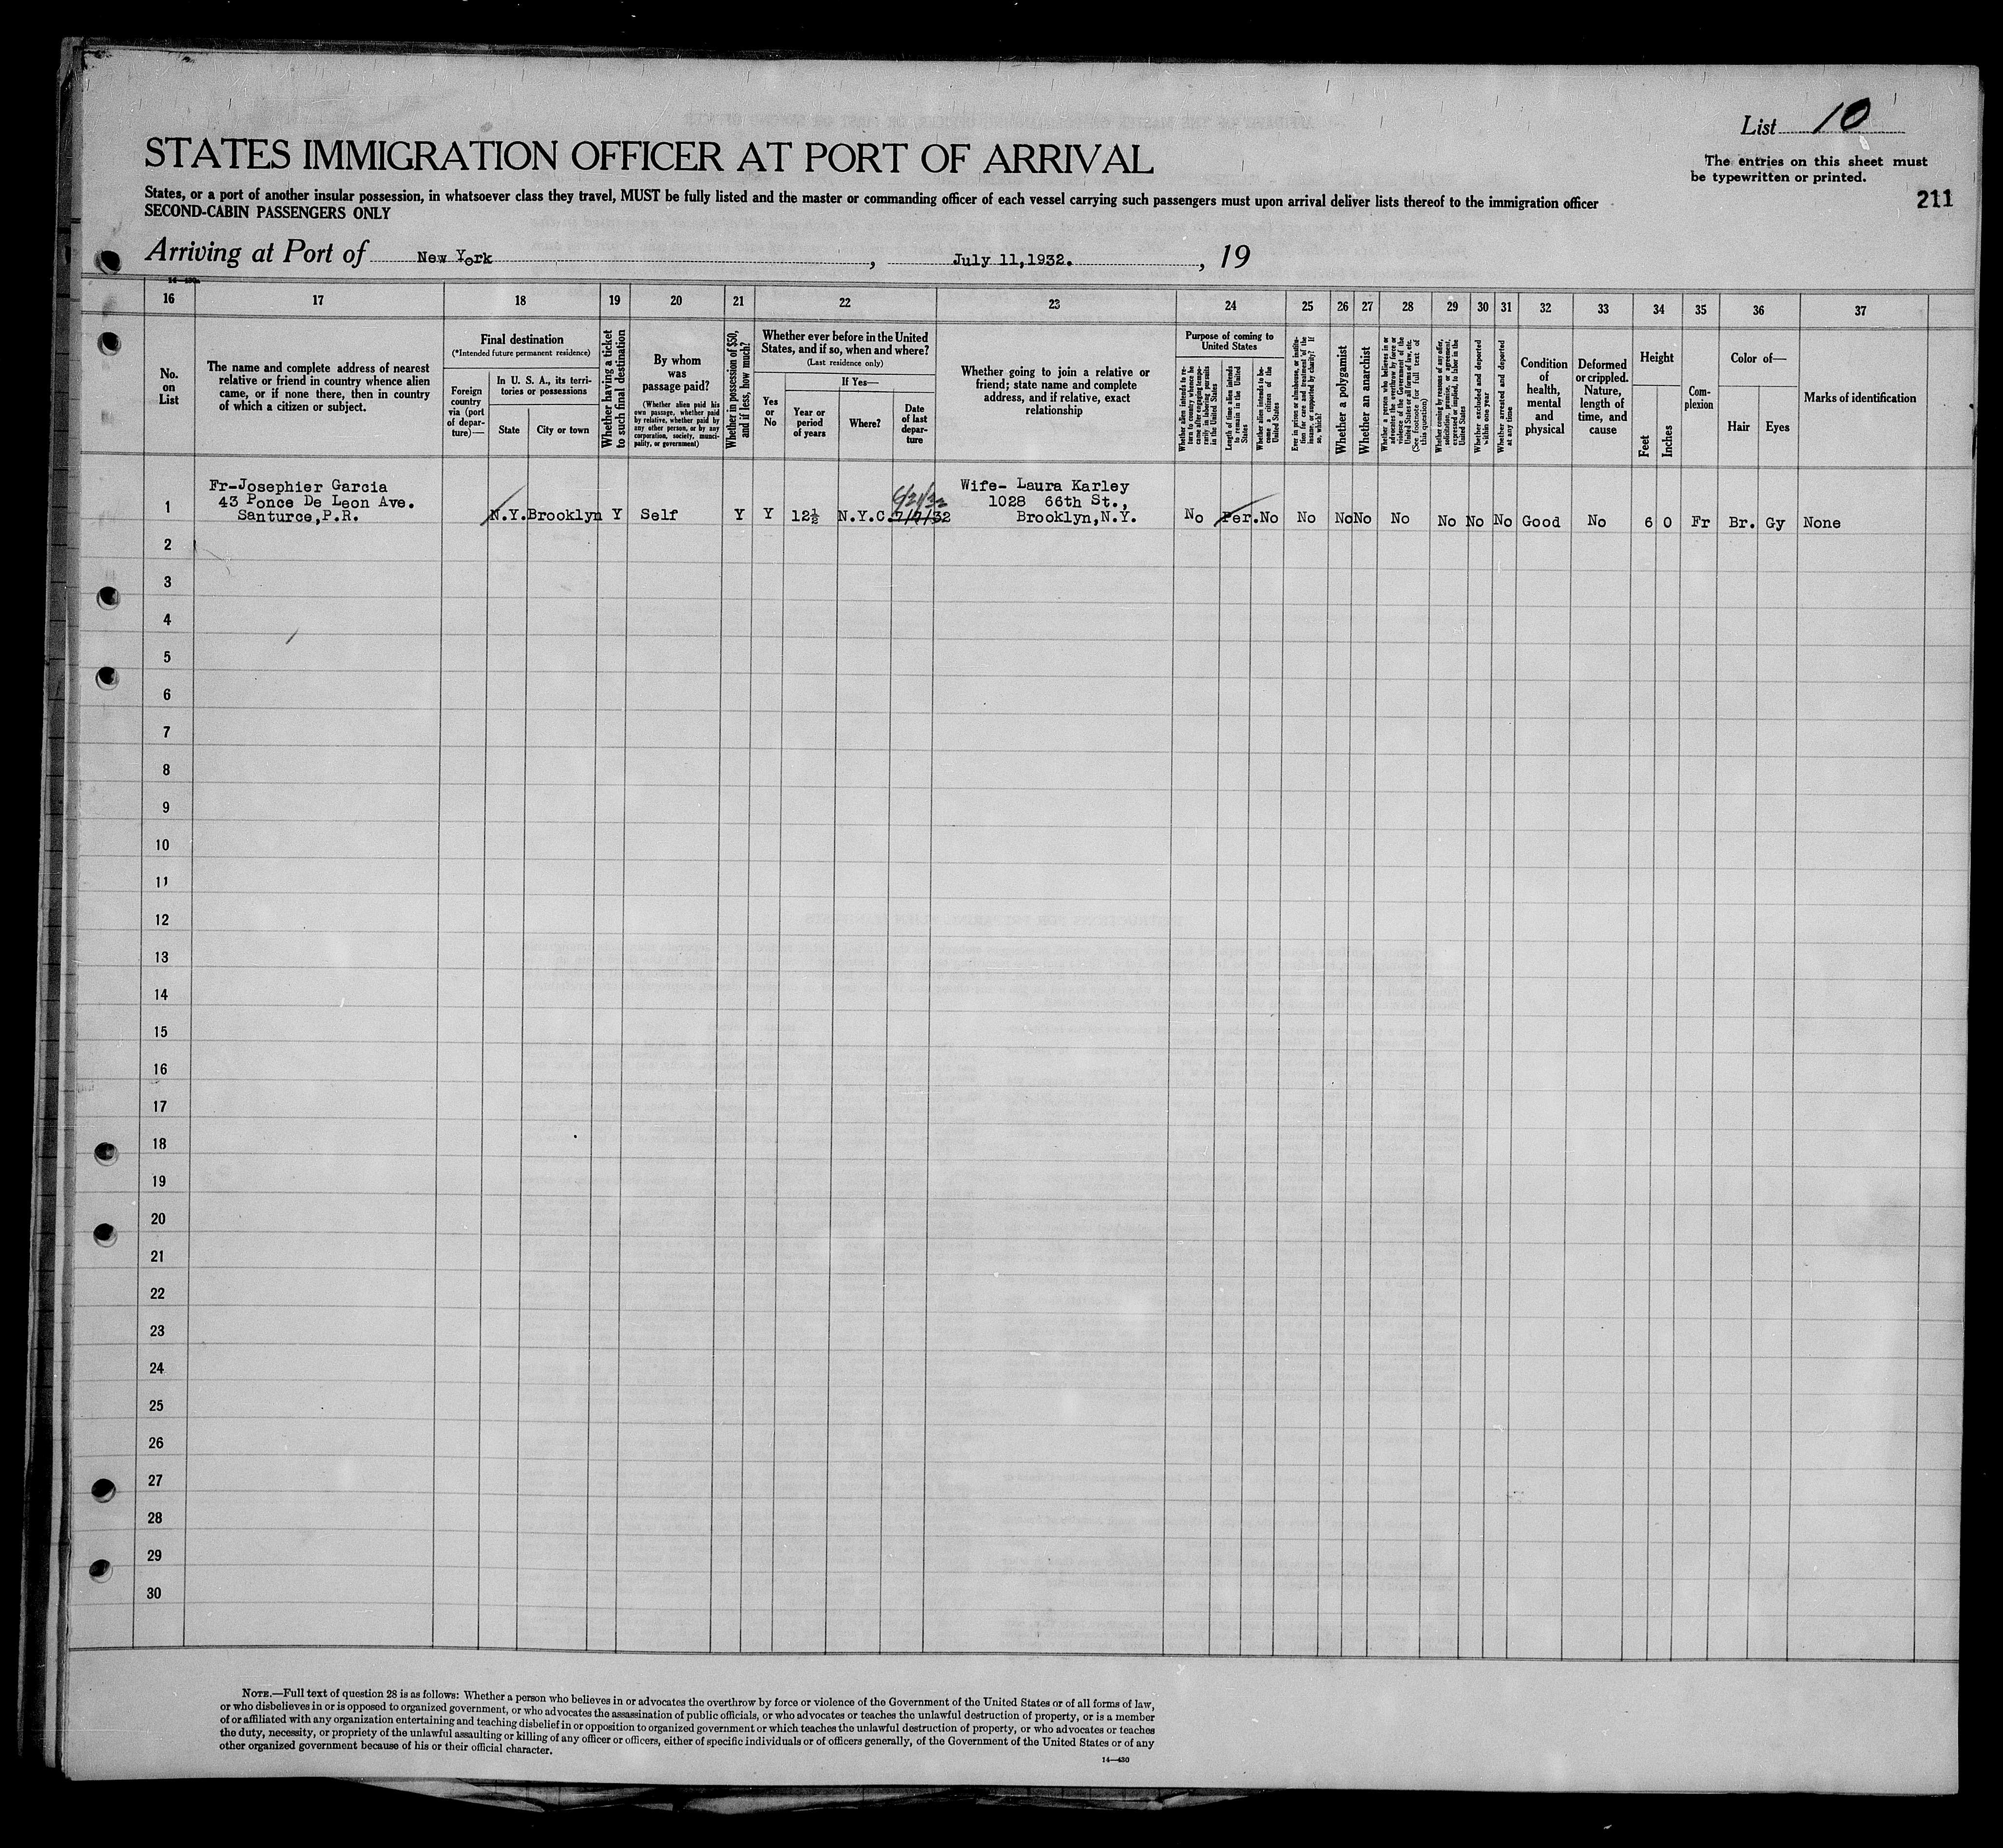 List 10
STATES IMMIGRATION OFFICER AT PORT OF ARRIVAL
The entries on this sheet must
be typewritten or printed.
States, or a port of another insular possession, in whatsoever class they travel, MUST be fully listed and the master or commanding officer of each vessel carrying such passengers must upon arrival deliver lists thereof to the immigration officer
SECOND-CABIN PASSENGERS ONLY
211
Arriving at Port of New York, July 11,1932., 19
16 17 18 19 20 21 22 23 24 25 26 27 28 29 30 31 32 33 34 35 36 37
No.
on
List
The name and complete address of nearest
relative or friend in country whence alien
came, or if none there, then in country
of which a citizen or subject.
Final destination
(*Intended future permanent residence)
Foreign
country
via (port
of depar-
ture)—
In U. S. A., its terri-
tories or possessions
State
City or town
Whether having a ticket
to such final destination
By whom
was
passage paid?
(Whether alien paid his
own passage, whether paid
by relative, whether paid by
any other person, or by any
corporation, society, munici-
pality, or government)
Whether in possession of $50,
and if less, how much?
Whether ever before in the United
States, and if so, when and where?
(Last residence only)
Yes
or
No
If Yes—
Year or
period
of years
Where?
Date
of last
depar-
ture
Whether going to join a relative or
friend; state name and complete
address, and if relative, exact
relationship
Purpose of coming to
United States
Whether alien intends to re-
turn to country whence he
came after engaging tempo-
rarily in laboring pursuits
in the United States
Length of time alien intends
to remain in the United
States
Whether alien intends to be-
come a citizen of the
United States
Ever in prison or almshouse, or institu-
tion for care and treatment of the
insane, or supported by charity? If
so, which?
Whether a polygamist
Whether an anarchist
Whether a person who believes in or
advocates the overthrow by force or
violence of the Government of the
United States or all forms of law, etc.
(See footnote for full text of
this question)
Whether coming by reasons of any offer,
solicitation, promise, or agreement,
expressed or implied, to labor in the
United States
Whether excluded and deported
within one year
Whether arrested and deported
at any time
Condition
of
health,
mental
and
physical
Deformed
or crippled.
Nature,
length of
time, and
cause
Height
Feet
Inches
Com-
plexion
Color of—
Hair
Eyes
Marks of identification
Fr-Josephier Garcia
43 Ponce De Leon Ave.
Santurce,P.R.
Wife- Laura Karley
1028 66th St.,
Brooklyn,N.Y.
1 N.Y. Brooklyn Y Self Y Y 12½ N.Y.C. No Per. No No No No No No No No Good No 6 0 Fr Br. Gy None
2
3
4
5
6
7
8
9
10
11
12
13
14
15
16
17
18
19
20
21
22
23
24
25
26
27
28
29
30
NOTE.—Full text of question 28 is as follows: Whether a person who believes in or advocates the overthrow by force or violence of the Government of the United States or of all forms of law,
or who disbelieves in or is opposed to organized government, or who advocates the assassination of public officials, or who advocates or teaches the unlawful destruction of property, or is a member
of or affiliated with any organization entertaining and teaching disbelief in or opposition to organized government or which teaches the unlawful destruction of property, or who advocates or teaches
the duty, necessity, or propriety of the unlawful assaulting or killing of any officer or officers, either of specific individuals or of officers generally, of the Government of the United States or of any
other organized government because of his or their official character.
14—430